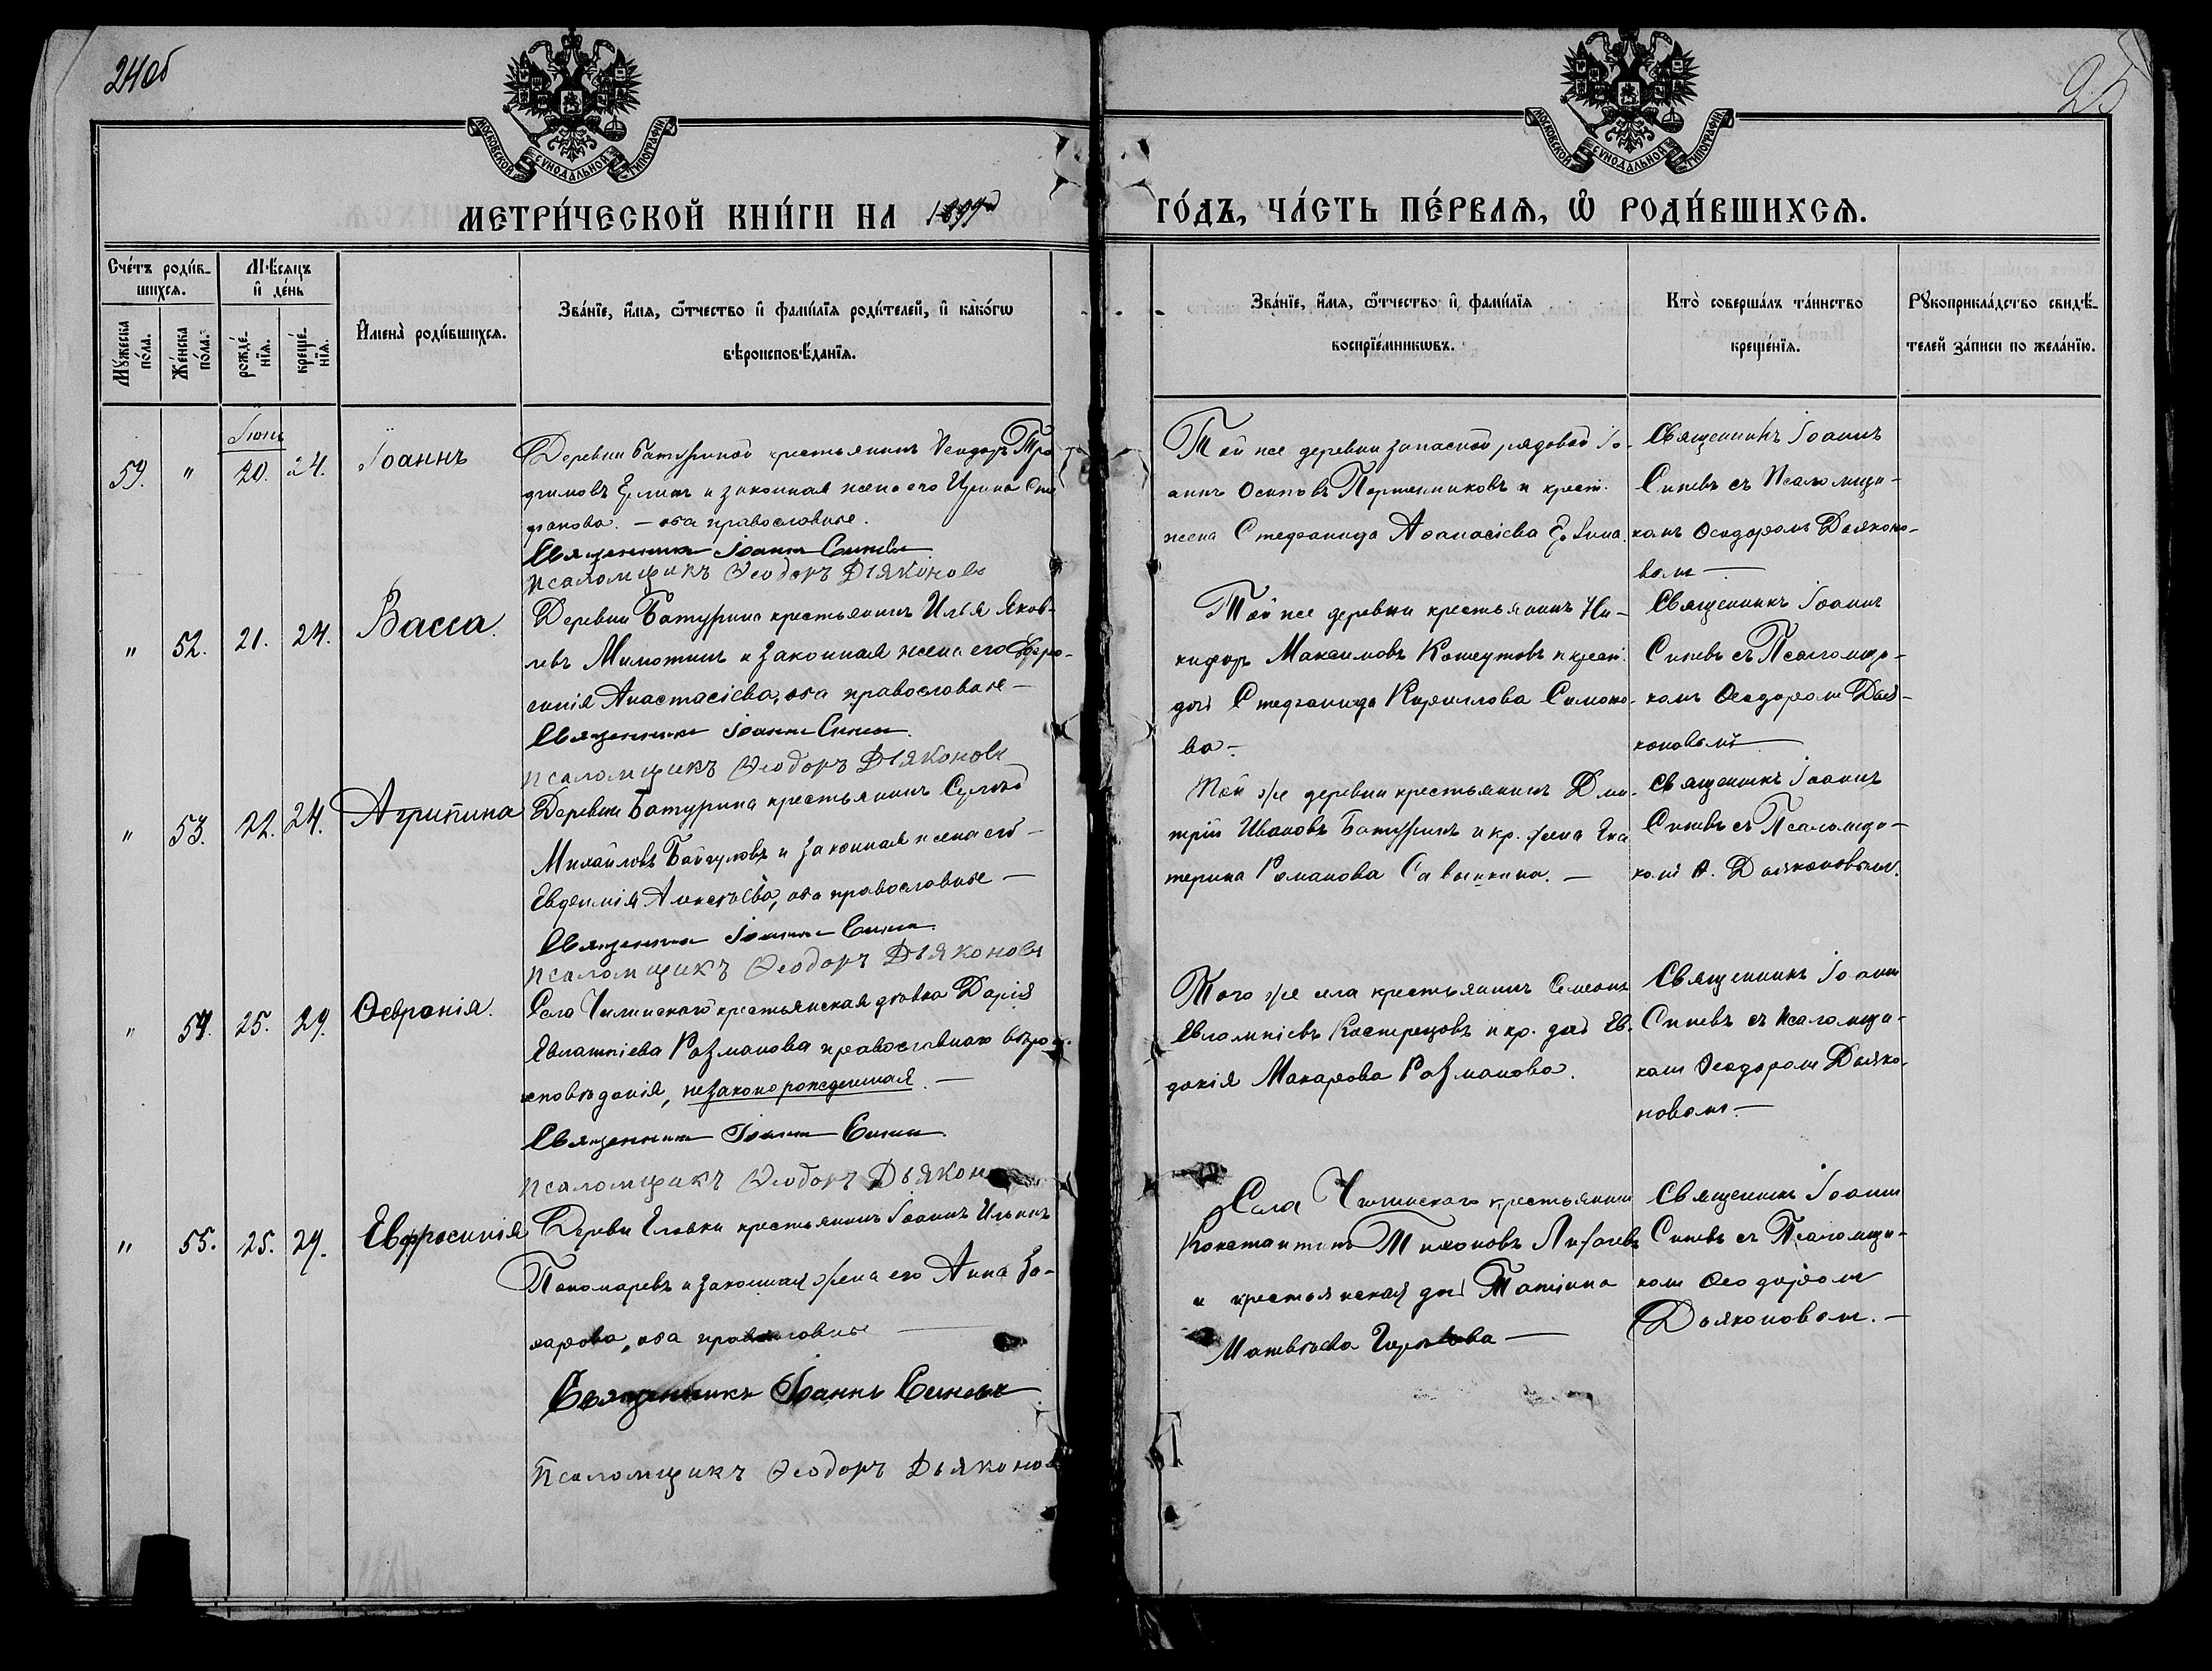 24об
25
МОСКОВСКОЙ СѴНОДАЛЬНОЙ ТИПОГРАФІИ
МОСКОВСКОЙ СѴНОДАЛЬНОЙ ТИПОГРАФІИ
МЕТРИ́ЧЕСКОЙ КНИ́ГИ НА 1899й
ГО́ДЪ, ЧА́СТЬ ПЕ́РВАѦ, Ѡ РОДИ́ВШИХСѦ.
Сче́тъ роди́в-
шихсѧ.
Мꙋ́жеска по́ла.
Же́нска по́ла.
Мѣ́сѧцъ
и҆ де́нь
рожде́-
нїѧ.
креще́-
нїѧ.
И҆мена̀ роди́вшихсѧ.
Зва́нїе, и҆́мѧ, ѻ҆́тчество и҆ фами́лїѧ роди́телей, и҆ како́гѡ
вѣроисповѣ́данїѧ.
Зва́нїе, и҆́мѧ, ѻ҆́тчество и҆ фами́лїѧ
воспрїе́мникѡвъ.
Кто̀ соверша́лъ та́инство
креще́нїѧ.
Рꙋкоприкла́дство свидѣ́-
телей за́писи по жела́нїю.
Іюнь
59. " 20. 24. Іоаннъ
Деревни Батуриной крестьянинъ Ѳеодоръ Тро
фимовъ Елинъ и законная жена его Ирина Сте
фанова. — оба православные.
Священникъ Іоаннъ Синевъ
Псаломщикъ Ѳеодоръ Дьяконовъ
Той же деревни запасной рядовой Іо-
аннъ Осиповъ Портнениковъ и крест.
жена Стефанида Аѳанасіева Елина.
Священникъ Іоаннъ
Синевъ съ Псаломщи-
комъ Ѳеодоромъ Дьяконо-
вымъ —
" 52. 21. 24. Васса.
Деревни Батурина крестьянинъ Илья Яков-
левъ Милютинъ и законная жена его Евфро-
синія Анастасіева, оба православные —
Священникъ Іоаннъ Синевъ
Псаломщикъ Ѳеодоръ Дьяконовъ
Той же деревни крестьянинъ Ни-
кифоръ Максимовъ Кошутовъ и крест.
дочь Стефанида Кириллова Симоно-
ва —
Священникъ Іоаннъ
Синевъ съ Псаломщи-
комъ Ѳеодоромъ Дья-
коновымъ —
" 53. 22. 24. Агрипина
Деревни Батурина крестьянинъ
Михайловъ Байгуловъ и законная жена его —
Евфимія Алексѣева, оба православные —
Священникъ Іоаннъ Синевъ
Псаломщикъ Ѳеодоръ Дьяконовъ
Той же деревни крестьянинъ Дми-
трій Ивановъ Батуринъ и кр. жена Ека
терина Романова Савыкина. —
Священникъ Іоаннъ
Синевъ съ Псаломщи-
комъ Ѳ. Дьяконовымъ.
" 54. 25. 29. Ѳевронія.
Села Чилинскаго крестьянская дѣвка Дарія
Евлампіева Разманова православнаго вѣро-
исповѣданія, незаконорожденная. —
Священникъ Іоаннъ Синевъ
Псаломщикъ Ѳеодоръ Дьякон
Того же села крестьянинъ Симеонъ
Евлампіевъ Кострецовъ и кр. дочь Ев-
докія Макарова Разманова.
Священникъ Іоаннъ
Синевъ съ Псаломщи-
комъ Ѳеодоромъ Дьяко-
новымъ —
" 55. 25. 29. Евфросинія
Деревни Еловки крестьянинъ Іоаннъ Ильинъ
Пономаревъ и законная жена его Анна За-
харова, оба православные —
Священникъ Іоаннъ Синевъ
Псаломщикъ Ѳеодоръ Дьяконов
Села Чилинскаго крестьянинъ
Константинъ Тихоновъ Лихачевъ
и крестьянская дочь Татіана
Матвѣева —
Священникъ Іоаннъ
Синевъ съ Псаломщи-
комъ Ѳеодоромъ
Дьяконовымъ. —